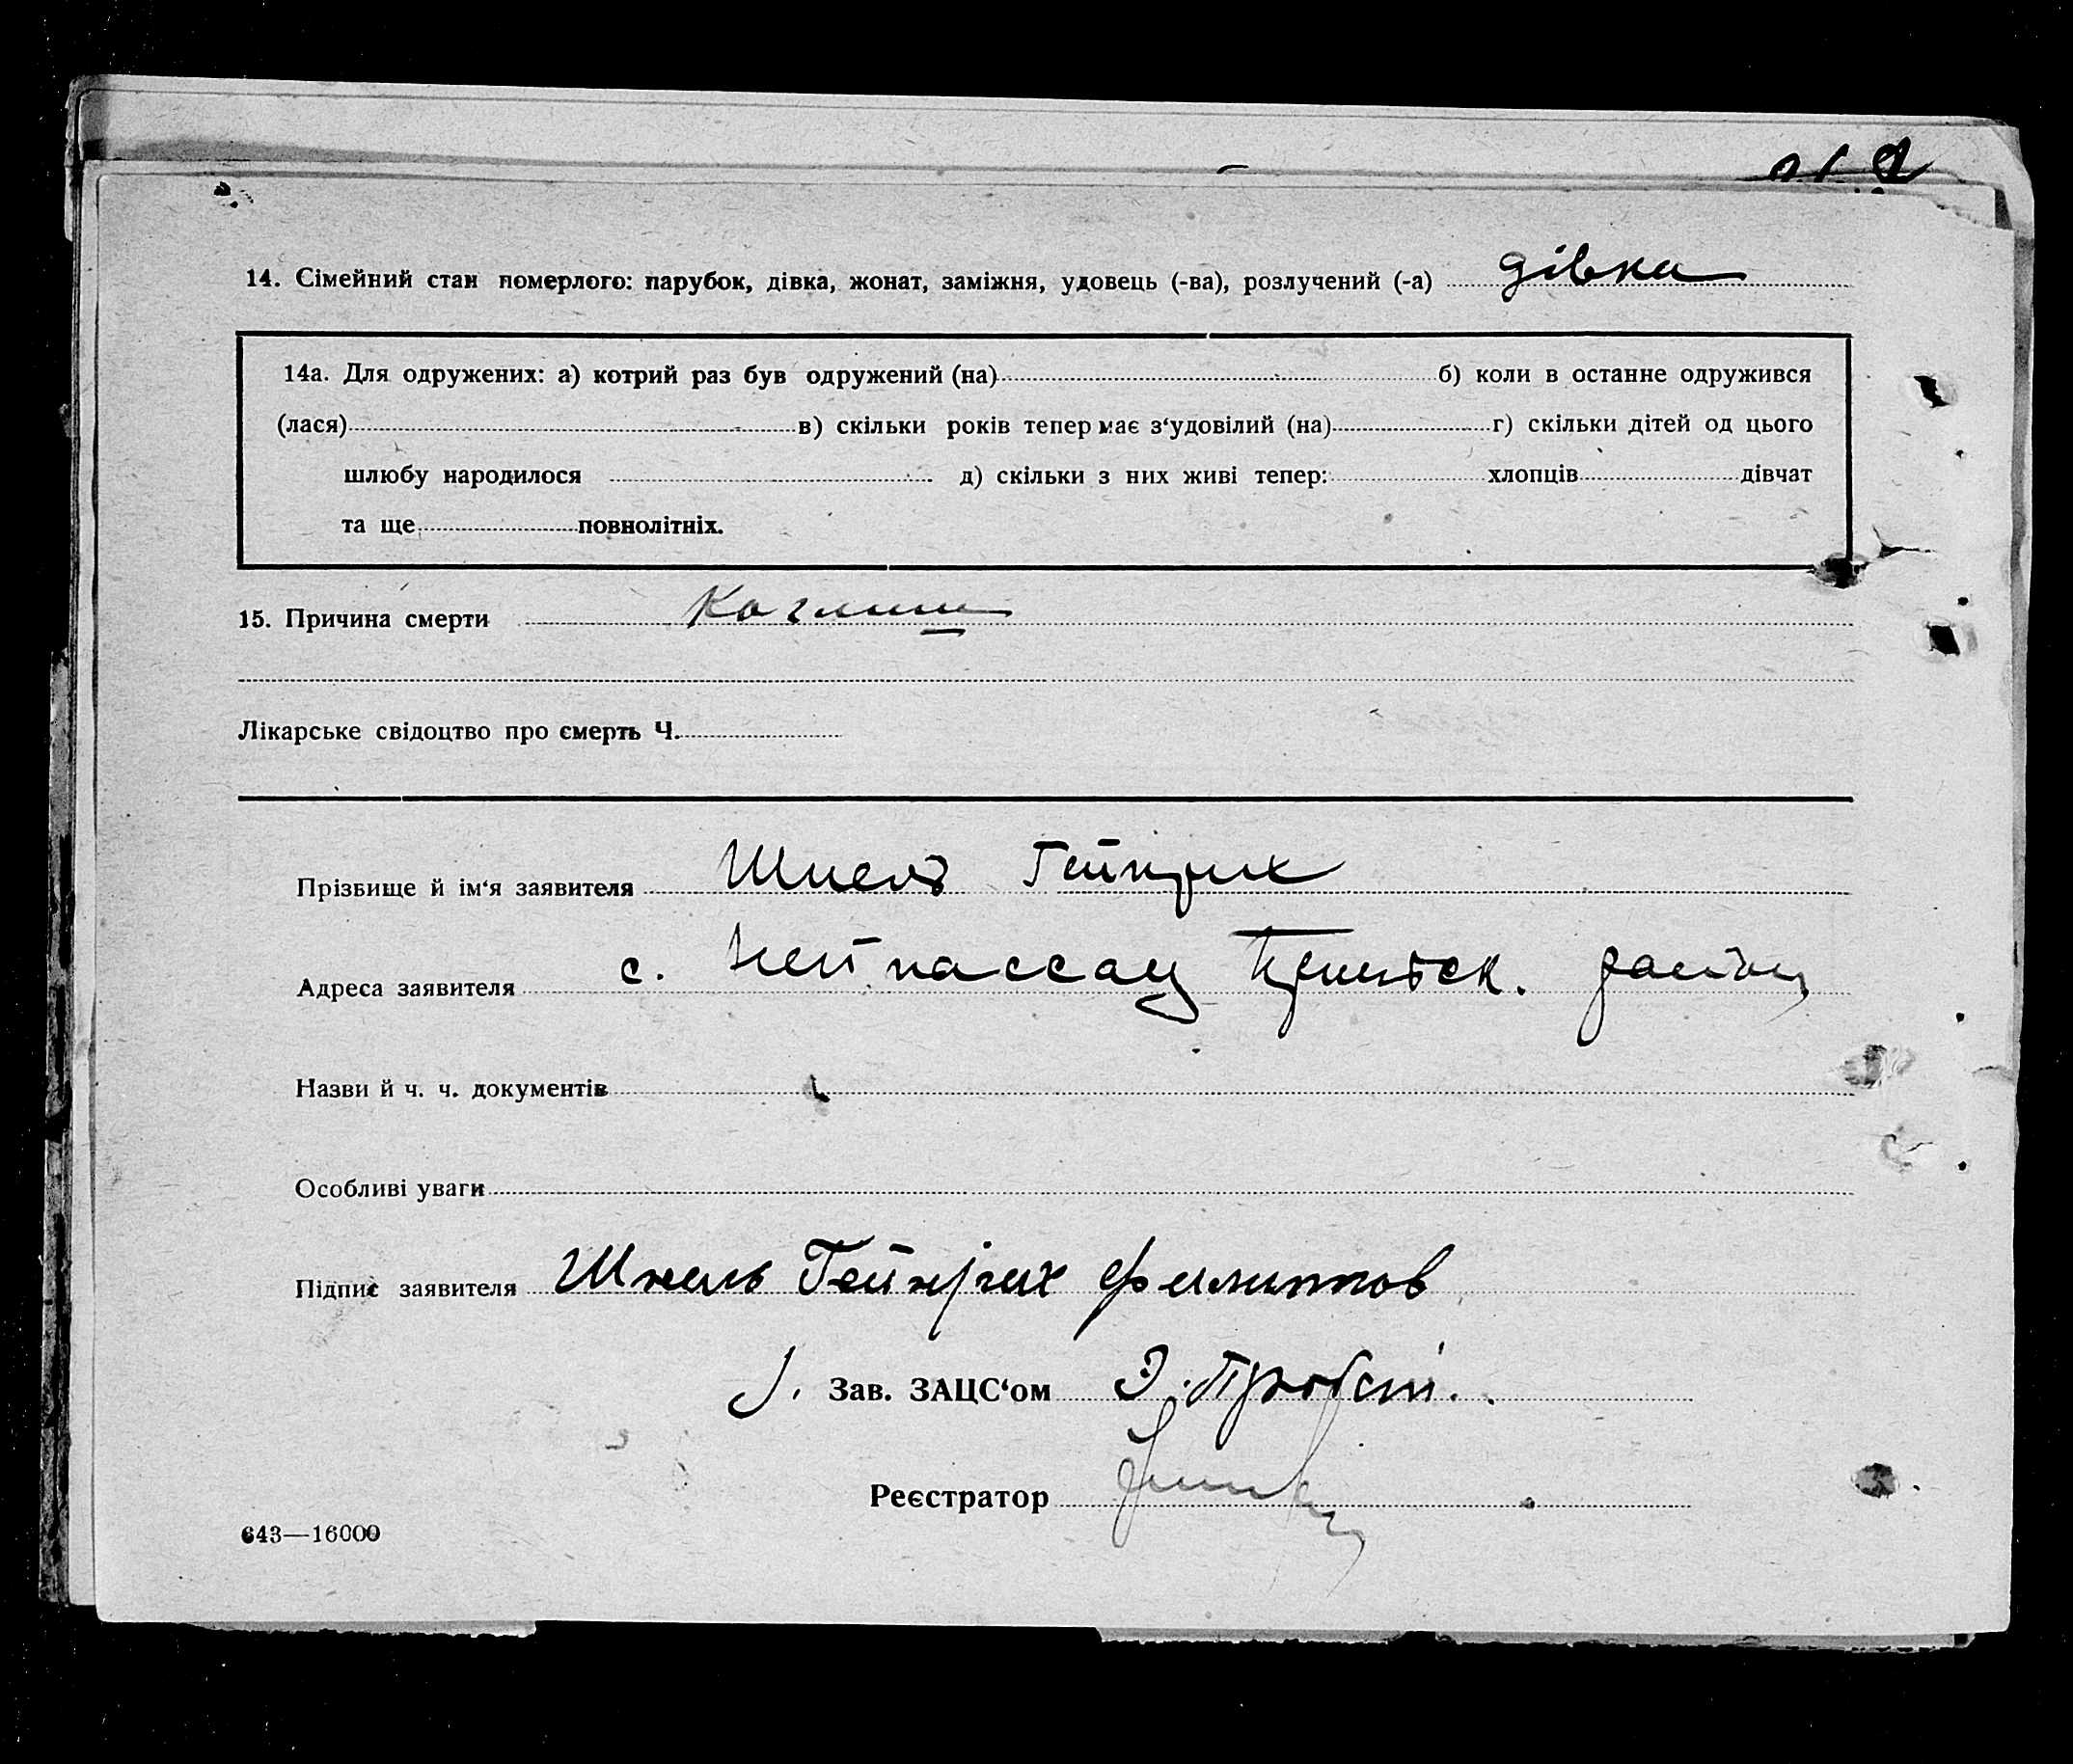 14. Сімейний стан померлого: парубок, дівка, жонат, заміжня, удовець (-ва), розлучений (-а) дівка
14а. Для одружених: а) котрий раз був одружений (на) б) коли в останнє одружився
(лася) в) скільки років тепер має з‘удовілий (на) г) скільки дітей од цього
шлюбу народилося д) скільки з них живі тепер: хлопців дівчат
та ще повнолітніх.
15. Причина смерти Коглиш
Лікарське свідоцтво про смерть Ч.
Прізвище й ім‘я заявителя Шнель Гейнрих
Адреса заявителя с. Нейпассау району
Назви й ч. ч. документів
Особливі уваги
Підпис заявителя Шнель Гейнрих Филиппов
Зав. ЗАЦС‘ом Э. Пробст.
Реєстратор
643—16000